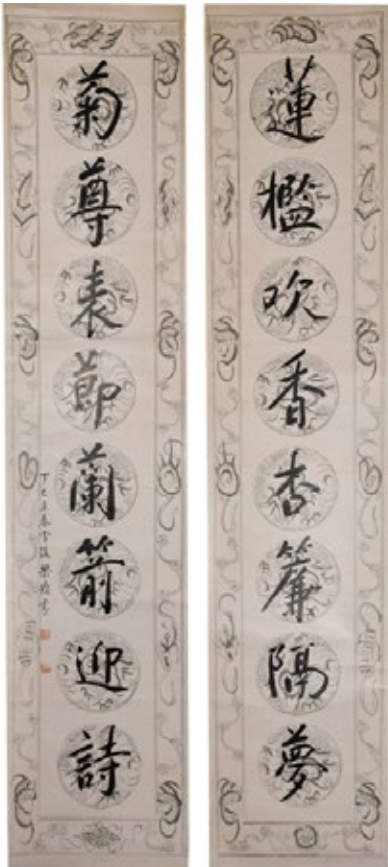 蓮檻吹香杏簾隔夢
菊尊表節蘭箭迎詩